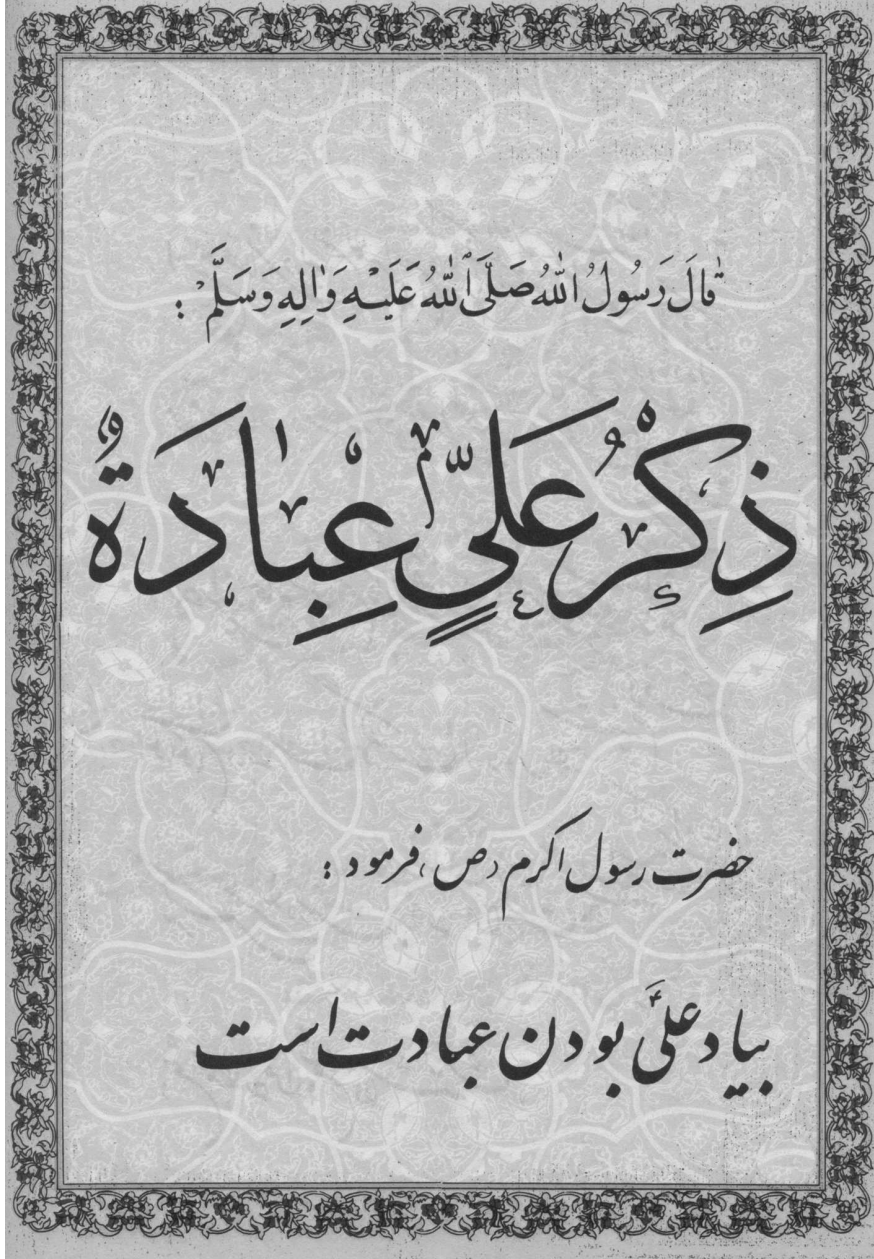 قٰالَ رَسُولُ اللّٰهُ صَلَّی اللّٰهُ عَلَیْهِ وَاٰلِهِ وَسَلَّمْ :
ذِکْرُ عَلِیٍّ عِبٰادَةٌ
حضرت رسول اکرم (ص) فرمود :
بیاد علیؑ بودن عبادت است